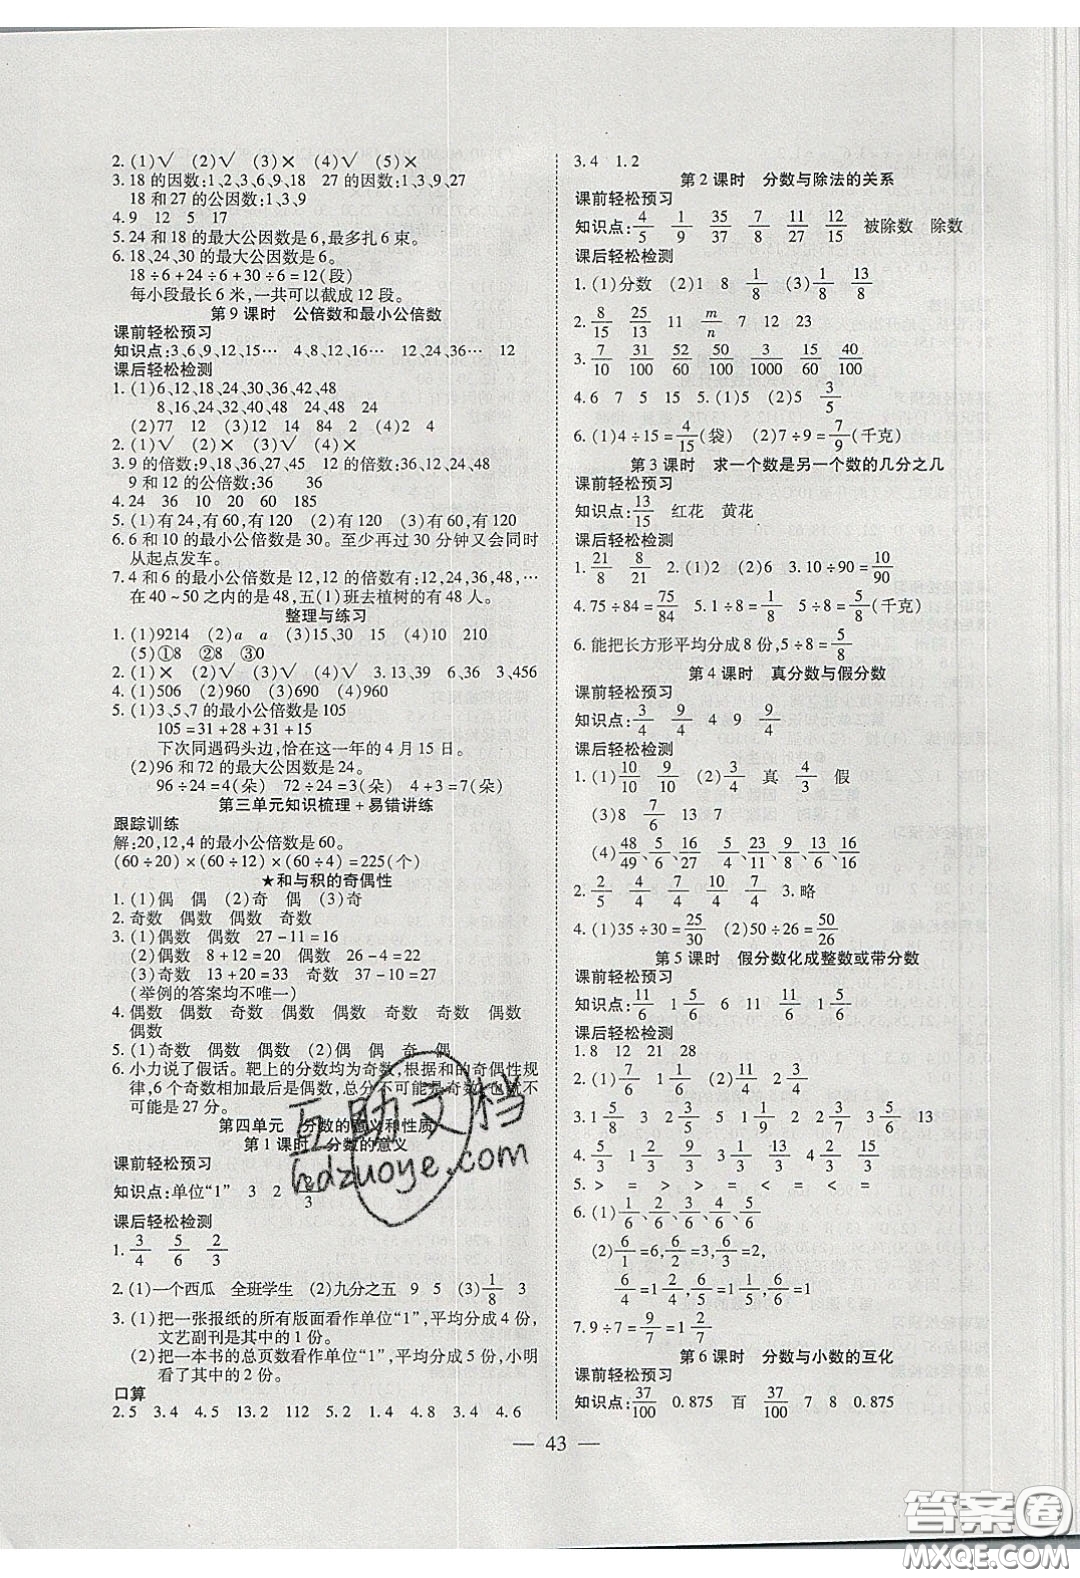 2. (1)√ (2)√ (3)× (4)× (5)√
3. 18 的因数:1、2、3、6、9、18 27 的因数:1、3、9、27
18 和 27 的公因数:1、3、9
4. 9 12 5 17
5. 24 和 18 的最大公因数是 6,最多扎 6 束。
6. 18、24、30 的最大公因数是 6。
18÷6+24÷6+30÷6=12(段)
每小段最长 6 米,一共可以截成 12 段。
第 9 课时 公倍数和最小公倍数
课前轻松预习
知识点:3、6、9、12、15… 4、8、12、16… 12、24、36… 12
课后轻松检测
1. (1)6、12、18、24、30、36、42、48
8、16、24、32、40、48 24、48 24
(2)77 12 (3)12 14 84 2 (4)2 4
2. (1)√ (2)√ (3)×
3. 9 的倍数:9、18、27、36、45 12 的倍数:12、24、36、48
9 和 12 的公倍数:36 36
4. 24 36 10 20 60 185
5. (1)有 24,有 60,有 120 (2)有 120 (3)有 60,有 120
6. 6 和 10 的最小公倍数是 30。至少再过 30 分钟又会同时
从起点发车。
7. 4 和 6 的最小公倍数是 12,12 的倍数有:12,24,36,48,…
在 40~50 之内的是 48,五(1)班去植树的有 48 人。
整理与练习
1. (1)9214 (2)a a (3)15、30 15 (4)10 210
(5)①8 ②8 ③0
2. (1)× (2)√ (3)√ (4)× 3. 13、39 6、36 3、456
4. (1)506 (2)960 (3)690 (4)960
5. (1)3、5、7 的最小公倍数是 105
105=31+28+31+15
下次同遇码头边,恰在这一年的 4 月 15 日。
(2)96 和 72 的最大公因数是 24。
96÷24=4(朵) 72÷24=3(朵) 4+3=7(朵)
第三单元知识梳理+易错讲练
跟踪训练
解:20,12,4 的最小公倍数是 60。
(60÷20)×(60÷12)×(60÷4)=225(个)
★和与积的奇偶性
1. (1)偶 偶 (2)奇 偶 (3)奇
2. 奇数 偶数 偶数 奇数
3. (1)偶数 偶数 27-11=16
(2)偶数 8+12=20 偶数 26-4=22
(3)奇数 13+20=33 奇数 37-10=27
(举例的答案均不唯一)
4. 偶数 偶数 奇数 偶数 偶数 偶数 奇数 偶数
偶数
5. (1)奇数 偶数 偶数 (2)偶 偶 奇 偶
6. 小力说了假话。靶上的分数均为奇数,根据和的奇偶性规
律,6 个奇数相加最后是偶数,总分不可能是奇数,也就不
可能是 27 分。
第四单元 分数的意义和性质
第 1 课时 分数的意义
课前轻松预习
知识点:单位“1” 3 2
课后轻松检测
1. 3/4 5/6 2/3
2. (1)一个西瓜 全班学生 (2)九分之五 9 5 (3)1/8 3
3. (1)把一张报纸的所有版面看作单位“1”,平均分成 4 份,
文艺副刊是其中的 1 份。
(2)把一本书的总页数看作单位“1”,平均分成 5 份,小明
看了其中的 2 份。
口算
2.5 3.4 4.5 13.2 112 5.8 1.4 3.4 4.6
3.4 1.2
第 2 课时 分数与除法的关系
课前轻松预习
知识点:4/5 1/9 35/37 7/8 11/27 12/15 被除数 除数
课后轻松检测
1. (1)分数 (2)1 8 1/8 13/8
2. 8/15 25/13 11 m/n 7 12 23
3. 7/10 31/100 52/60 77/100 3/1000 15/60 40/100
4. 6 7 5 15 5. (1)2 (2)5 3/8
6. (1)4÷15=4/15(袋) (2)7÷9=7/9(千克)
第 3 课时 求一个数是另一个数的几分之几
课前轻松预习
知识点:13/15 红花 黄花
课后轻松检测
1. 21/8 8/21 2. (1)2 (2)6 3. 10÷90=10/90
4. 75÷84=75/84 5. 1÷8=1/8 5÷8=5/8(千克)
6. 能把长方形平均分成 8 份,5÷8=5/8
第 4 课时 真分数与假分数
课前轻松预习
知识点:3/4 9/4 4 9 9/4
课后轻松检测
1. (1)10/10 9/10 (2)3/4 真 4/3 假
(3)8 7/6 13 7
(4)48/49、5/6、1/7 4/4、7/4、16/15、13/4
2. 2/5 5/4 7/4 7/4 3. 略
4. (1)35÷30=25/30 (2)50÷26=50/26
第 5 课时 假分数化成整数或带分数
课前轻松预习
知识点:11/6 1 5/6 6 11 11/6 1 5/6
课后轻松检测
1. 8 12 21 28
2. 1 1/4 2 1/4 3 3/4 4 1/4
3. 1 5/8 1 3/4 4 1/2 2 2 2/7 3 3/5 13
4. 5/3 5/3 13/5 13/5 11/4 11/4 19/9 19/9
5. > = > > < = < =
6. (1)1/6、2/6、3/6、4/6、5/6
(2)6/1=6,6/2=3,6/3=2,
6/4=1 2/4,6/5=1 1/5,6/6=1
7. 9÷7=9/7=1 2/7
第 6 课时 分数与小数的互化
课前轻松预习
知识点:37/100 0.875 百 37/100 7 8 0.875
— 43 —
互助文档
hdzuoye.com
答案圈
MXQE.COM